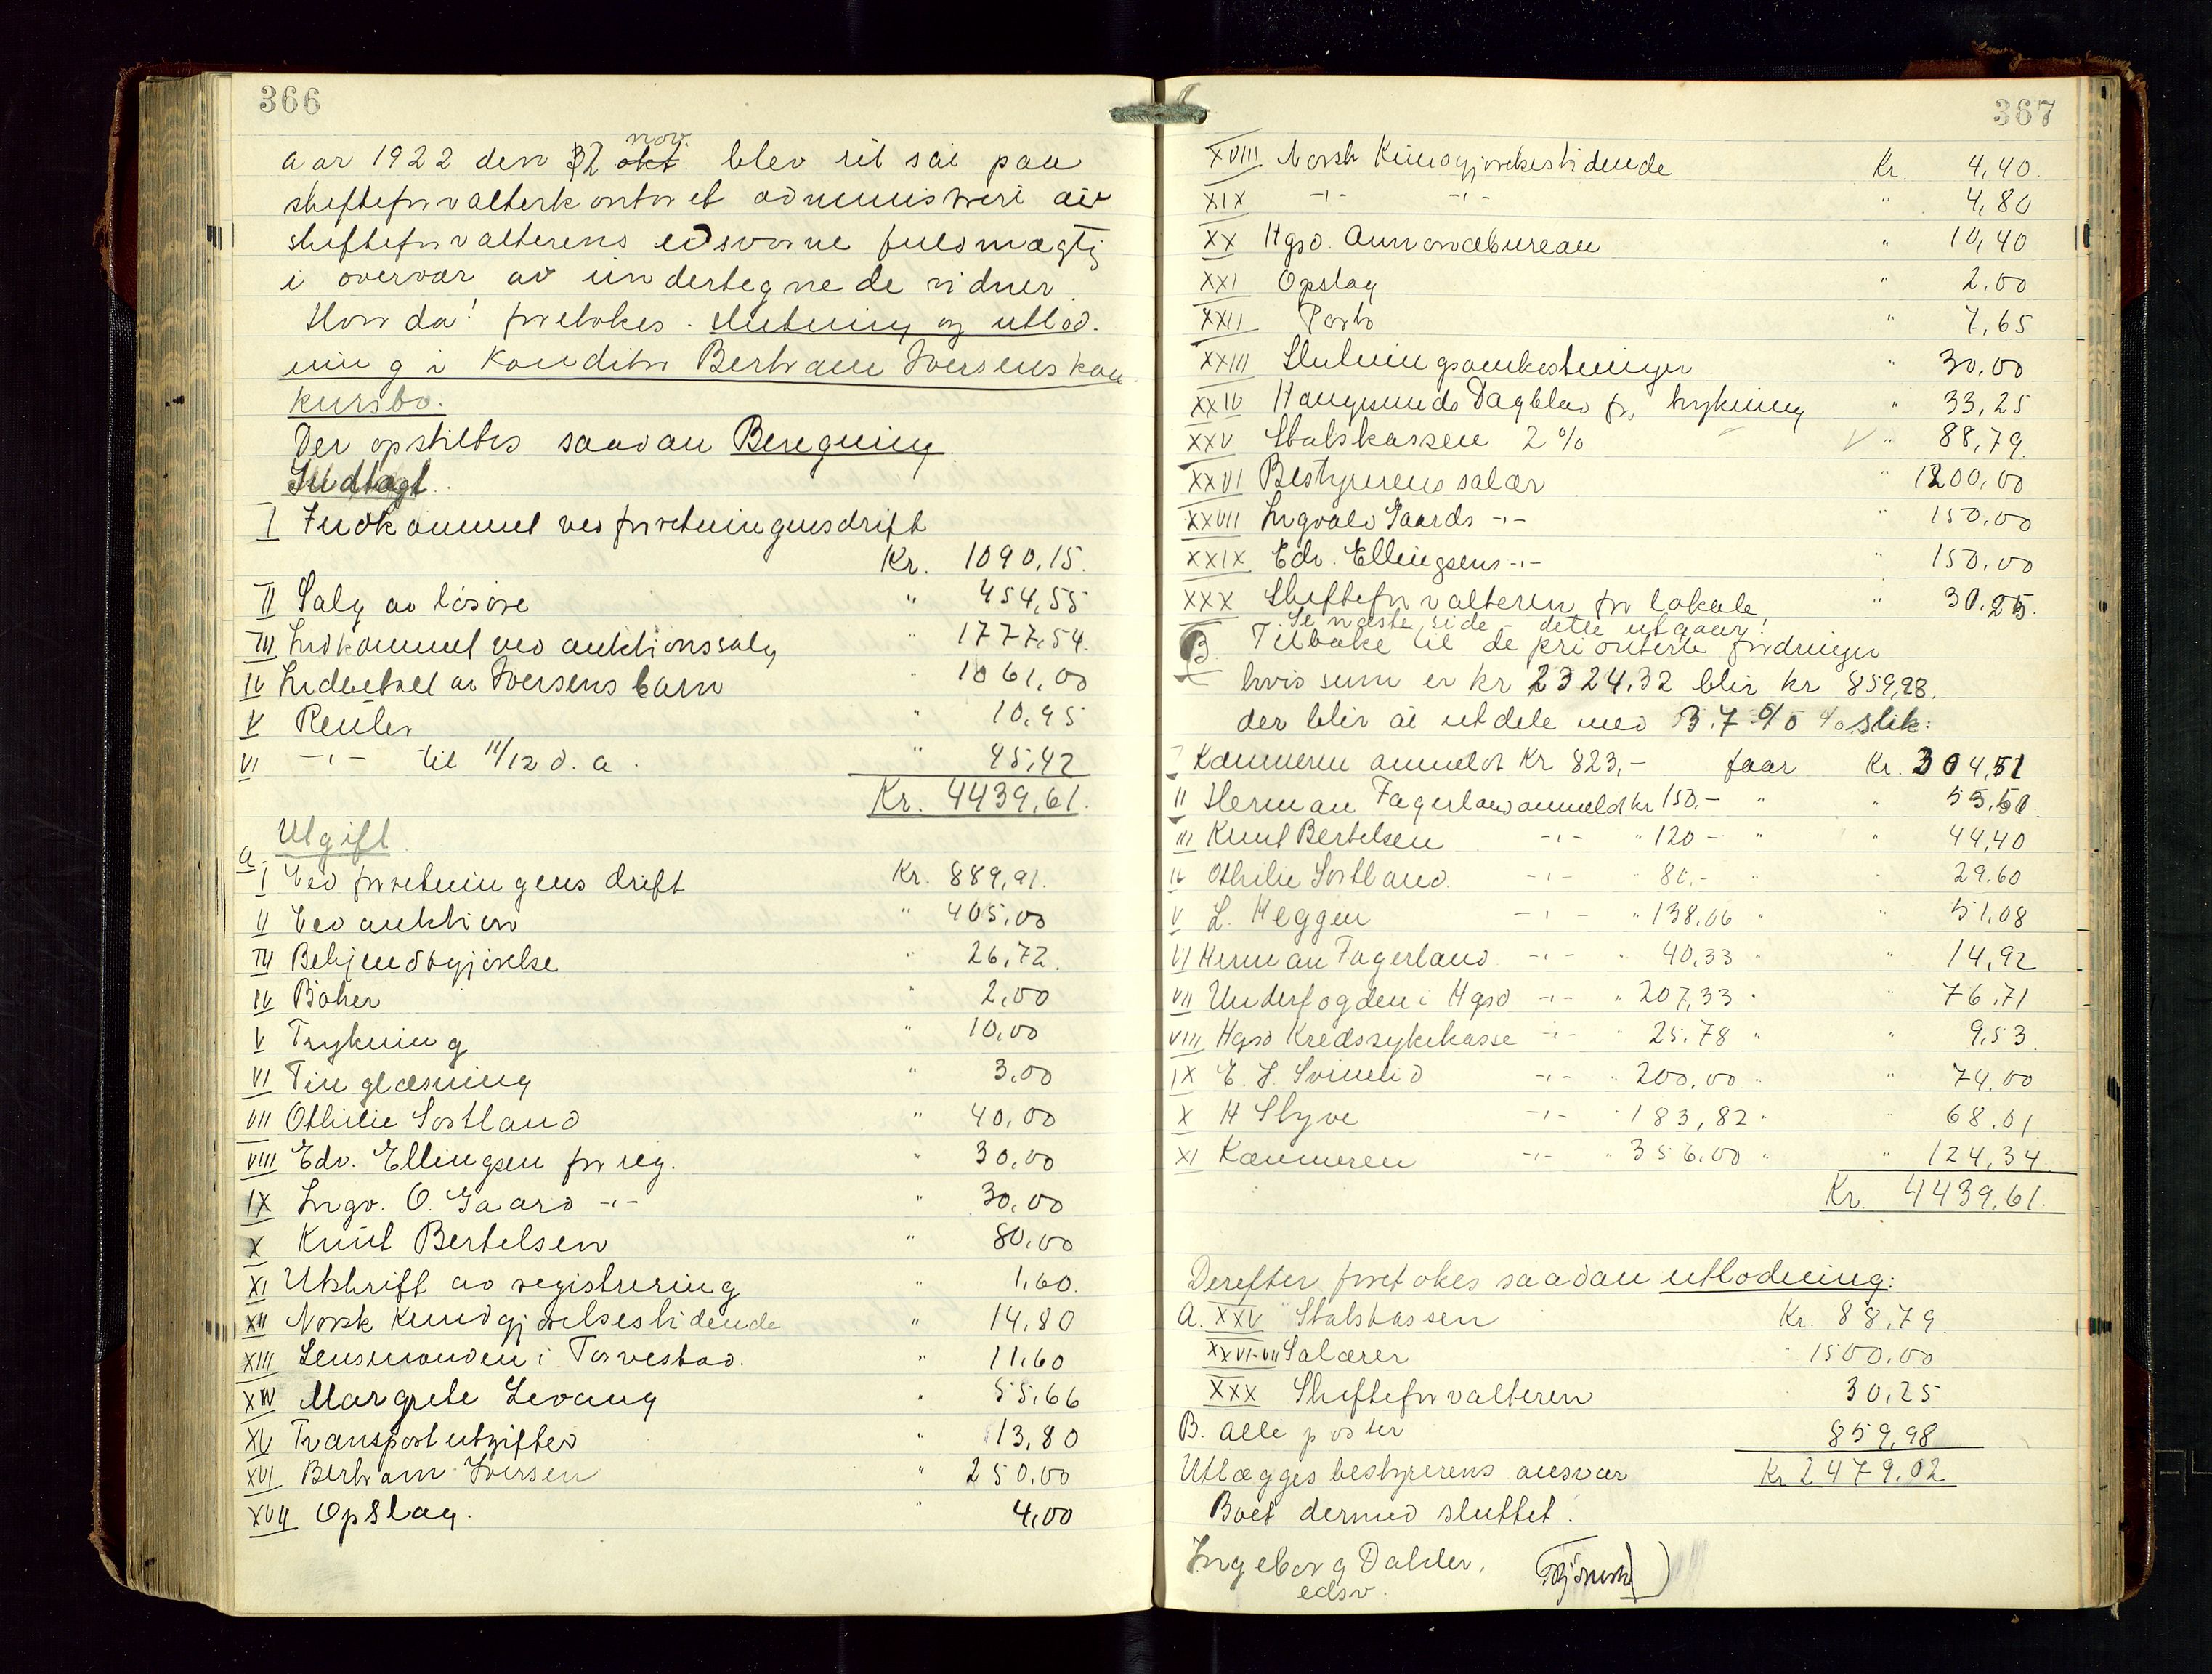 366
aar 1922 den 32 okt. nov. blev ret sat paa
skifteforvalterkontoret administreret av
skifteforvalterens edsvorne fuldmægtig
i overvær av undertegnede vidner.
Hvor da! foretokes. slutning og utlod-
ning i Konditor Bertram Iversens kon-
kursbo.
Der opstiltes saadan Beregning
Indtægt.
I Indkommet ved forretningens drift
Kr. 1090,15.
II Salg av løsøre " 454,55
III Indkommet ved auktionssalg " 1777,54.
IV Indbetalt av Iversens barn " 1061,00
V Renter " 10,95
VI -"- til 11/12 d. a. " 45,42
Kr. 4439,61.
Utgift
a. I Ved forretningens drift Kr. 889,91.
II Ved auktion " 405,00
III Bekjendtgjørelse " 26,72.
IV Bøker " 2,00
V Trykning " 10,00
VI Tinglæsning " 3,00
VII Othilie Sortland " 40,00
VIII Edv. Ellingsen for reg. " 30,00
IX Ingv. O. Gaard -"- " 30,00
X Knut Bertelsen " 80,00
XI Utskrift av registrering " 1,60.
XII Norsk Kundgjørelsestidende " 14,80
XIII Lensmanden i Torvestad. " 11,60
XIV Margrete Levang " 55,66
XV Transportutgifter " 13,80
XVI Bertram Iversen " 250,00
XVII Opslag. " 4,00
367
XVIII Norsk Kundgjørelsestidende Kr. 4,40.
XIX -"- -"- " 4,80
XX Hgsd. Annoncebureau " 10,40
XXI Opslag " 2,00
XXII Porto " 7,65
XXIII Slutningsomkostninger " 30,00
XXIV Haugesunds Dagblad for trykning " 33,25
XXV Statskassen 2 % " 88,79.
XXVI Bestyrerens salær " 1200,00
XXVII Ingvald Gaards -"- " 150,00
XXIX Edv. Ellingsens -"- " 150,00
XXX Skifteforvalteren for lokale " 30,25.
Se næste side - dette utgaar!
B. Tilbake til de prioriterte fordringer
hvis sum er kr 2324,32 blir kr 859,98.
der blir at utdele med 3.7 % % slik:
I Kæmneren anmeldt Kr 823,- faar Kr. 304,51
II Herman Fagerland anmeldt kr 150.- " " 55,50
III Knut Bertelsen -"- " 120 - " " 44,40
IV Othilie Sortland. -"- " 80.- " " 29.60
V L. Heggen -"- " 138,06 " " 51,08
VI Herman Fagerland -"- " 40,33 " " 14,92
VII Underfogden i Hgsd -"- " 207,33 " " 76,71
VIII Hgsd Kredssykekasse -"- " 25.78 " " 9,53
IX E. J. Svinelid -"- " 200,00 " " 74,00
X H Styve -"- " 183,82 " " 68.01
XI Kæmneren -"- " 356.00 " " 124,34
Kr. 4439,61.
Derefter foretokes saadan utlodning:
A. XXV Statskassen Kr. 88,79
XXVI-VII Salærer " 1500.00
XXX Skifteforvalteren 30,25
B. alle poster 859,98
Utlægges bestyrerens ansvar Kr 2479,02
Boet dermed sluttet.
Ingeborg Dahler,
edsv.